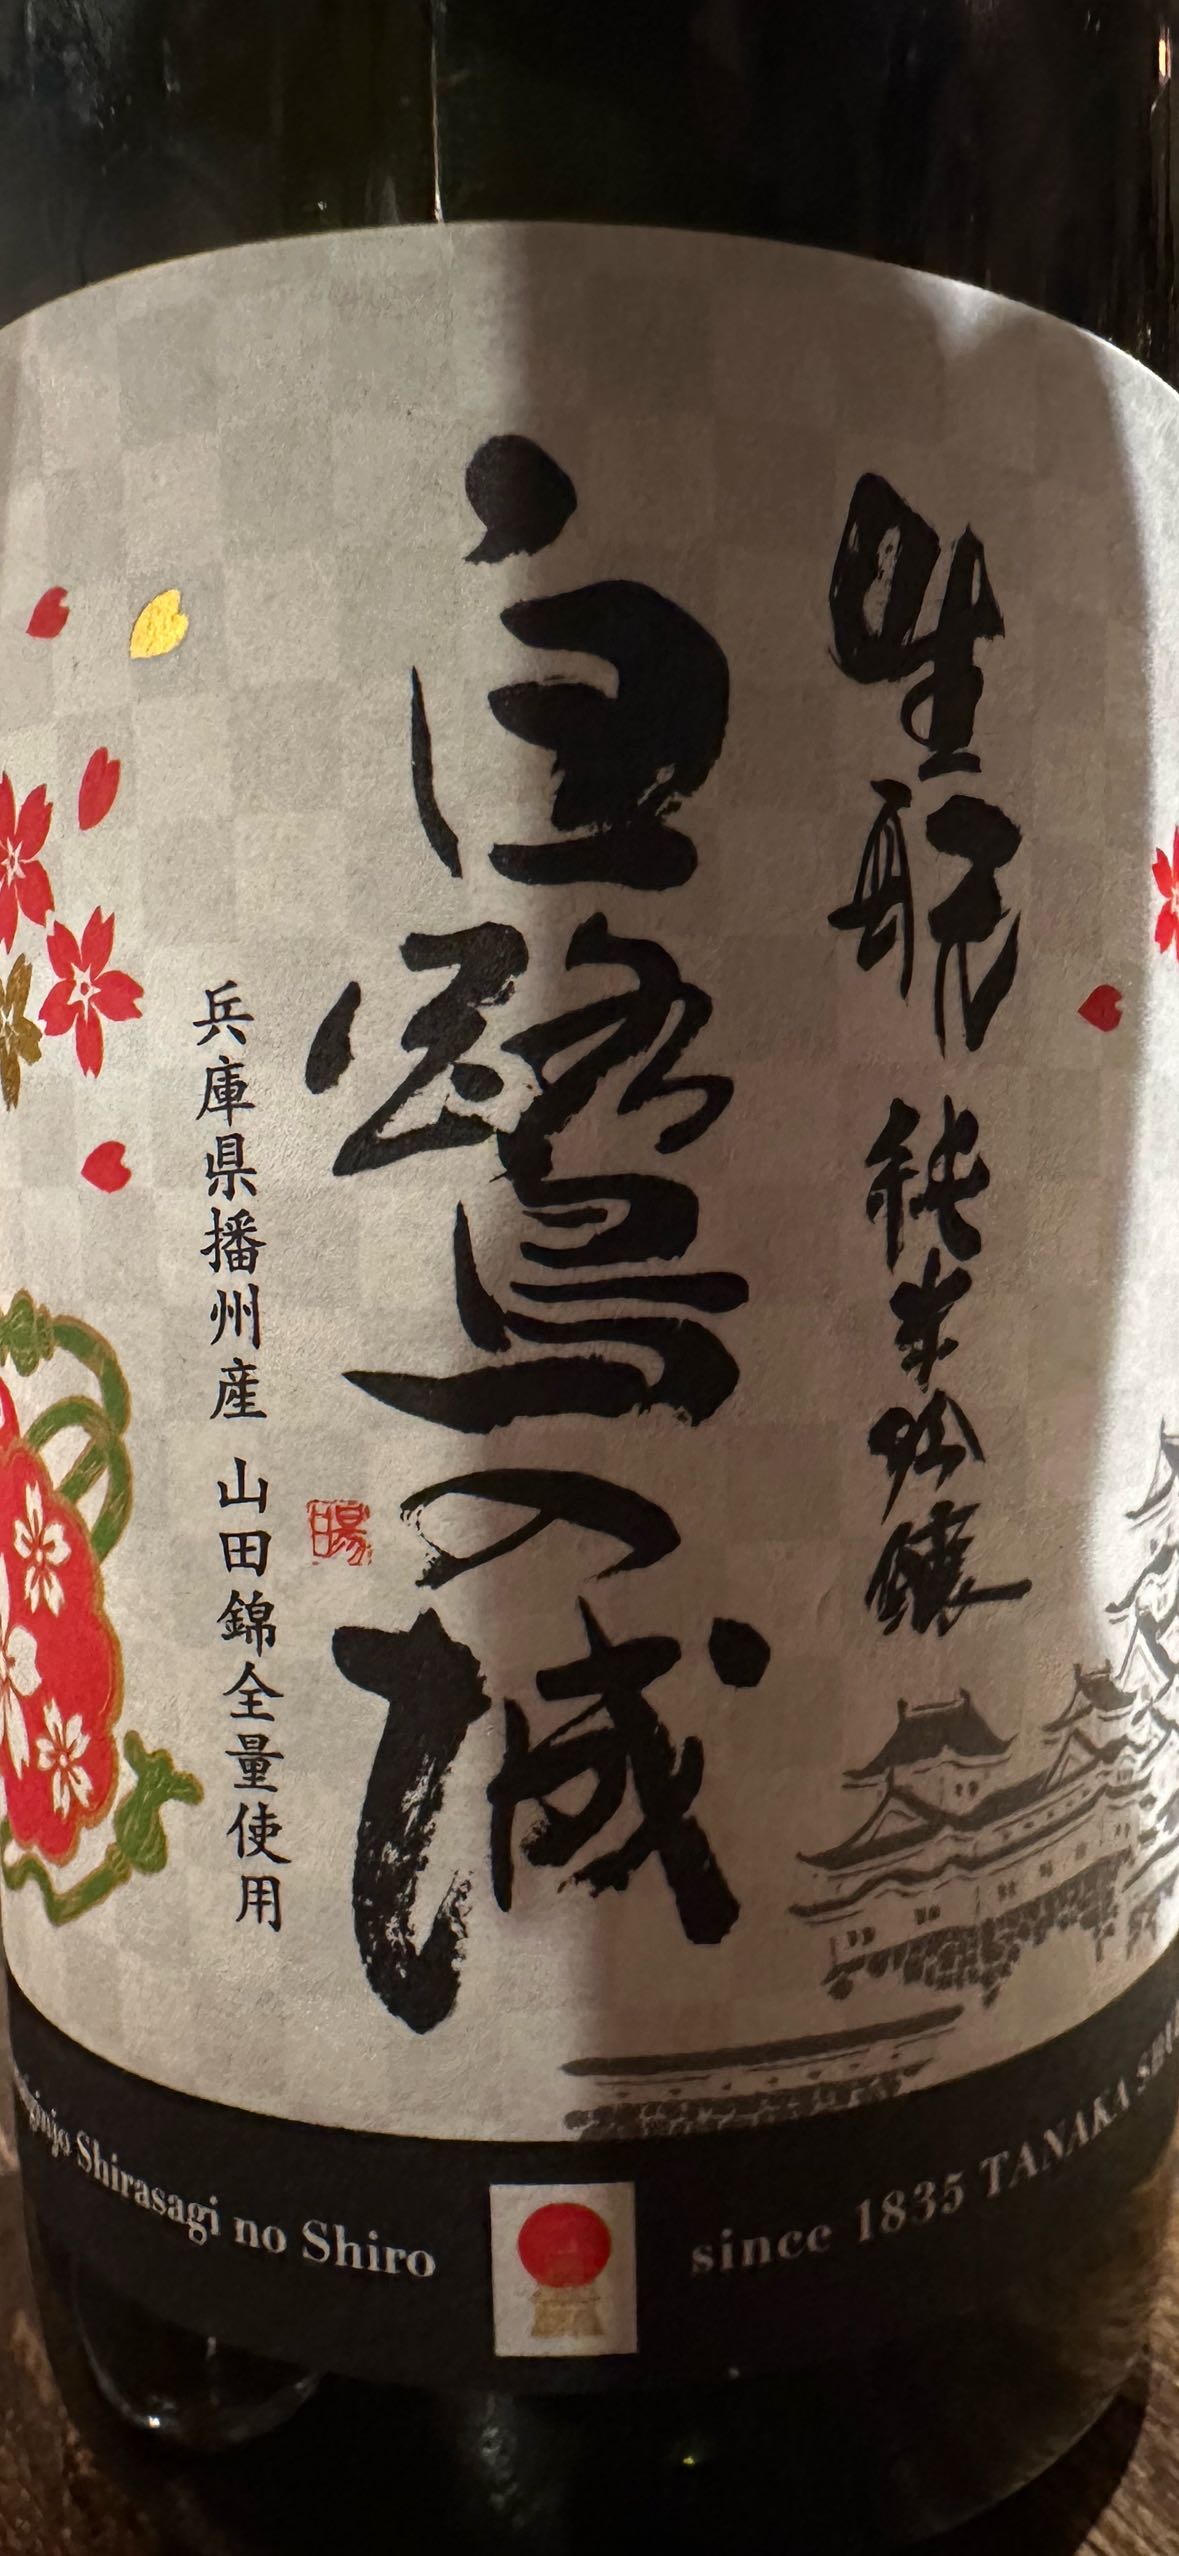 生酛 純米吟醸
白鷺の城
兵庫県播州産 山田錦全量使用
Shirasagi no Shiro
since 1835 TANAKA